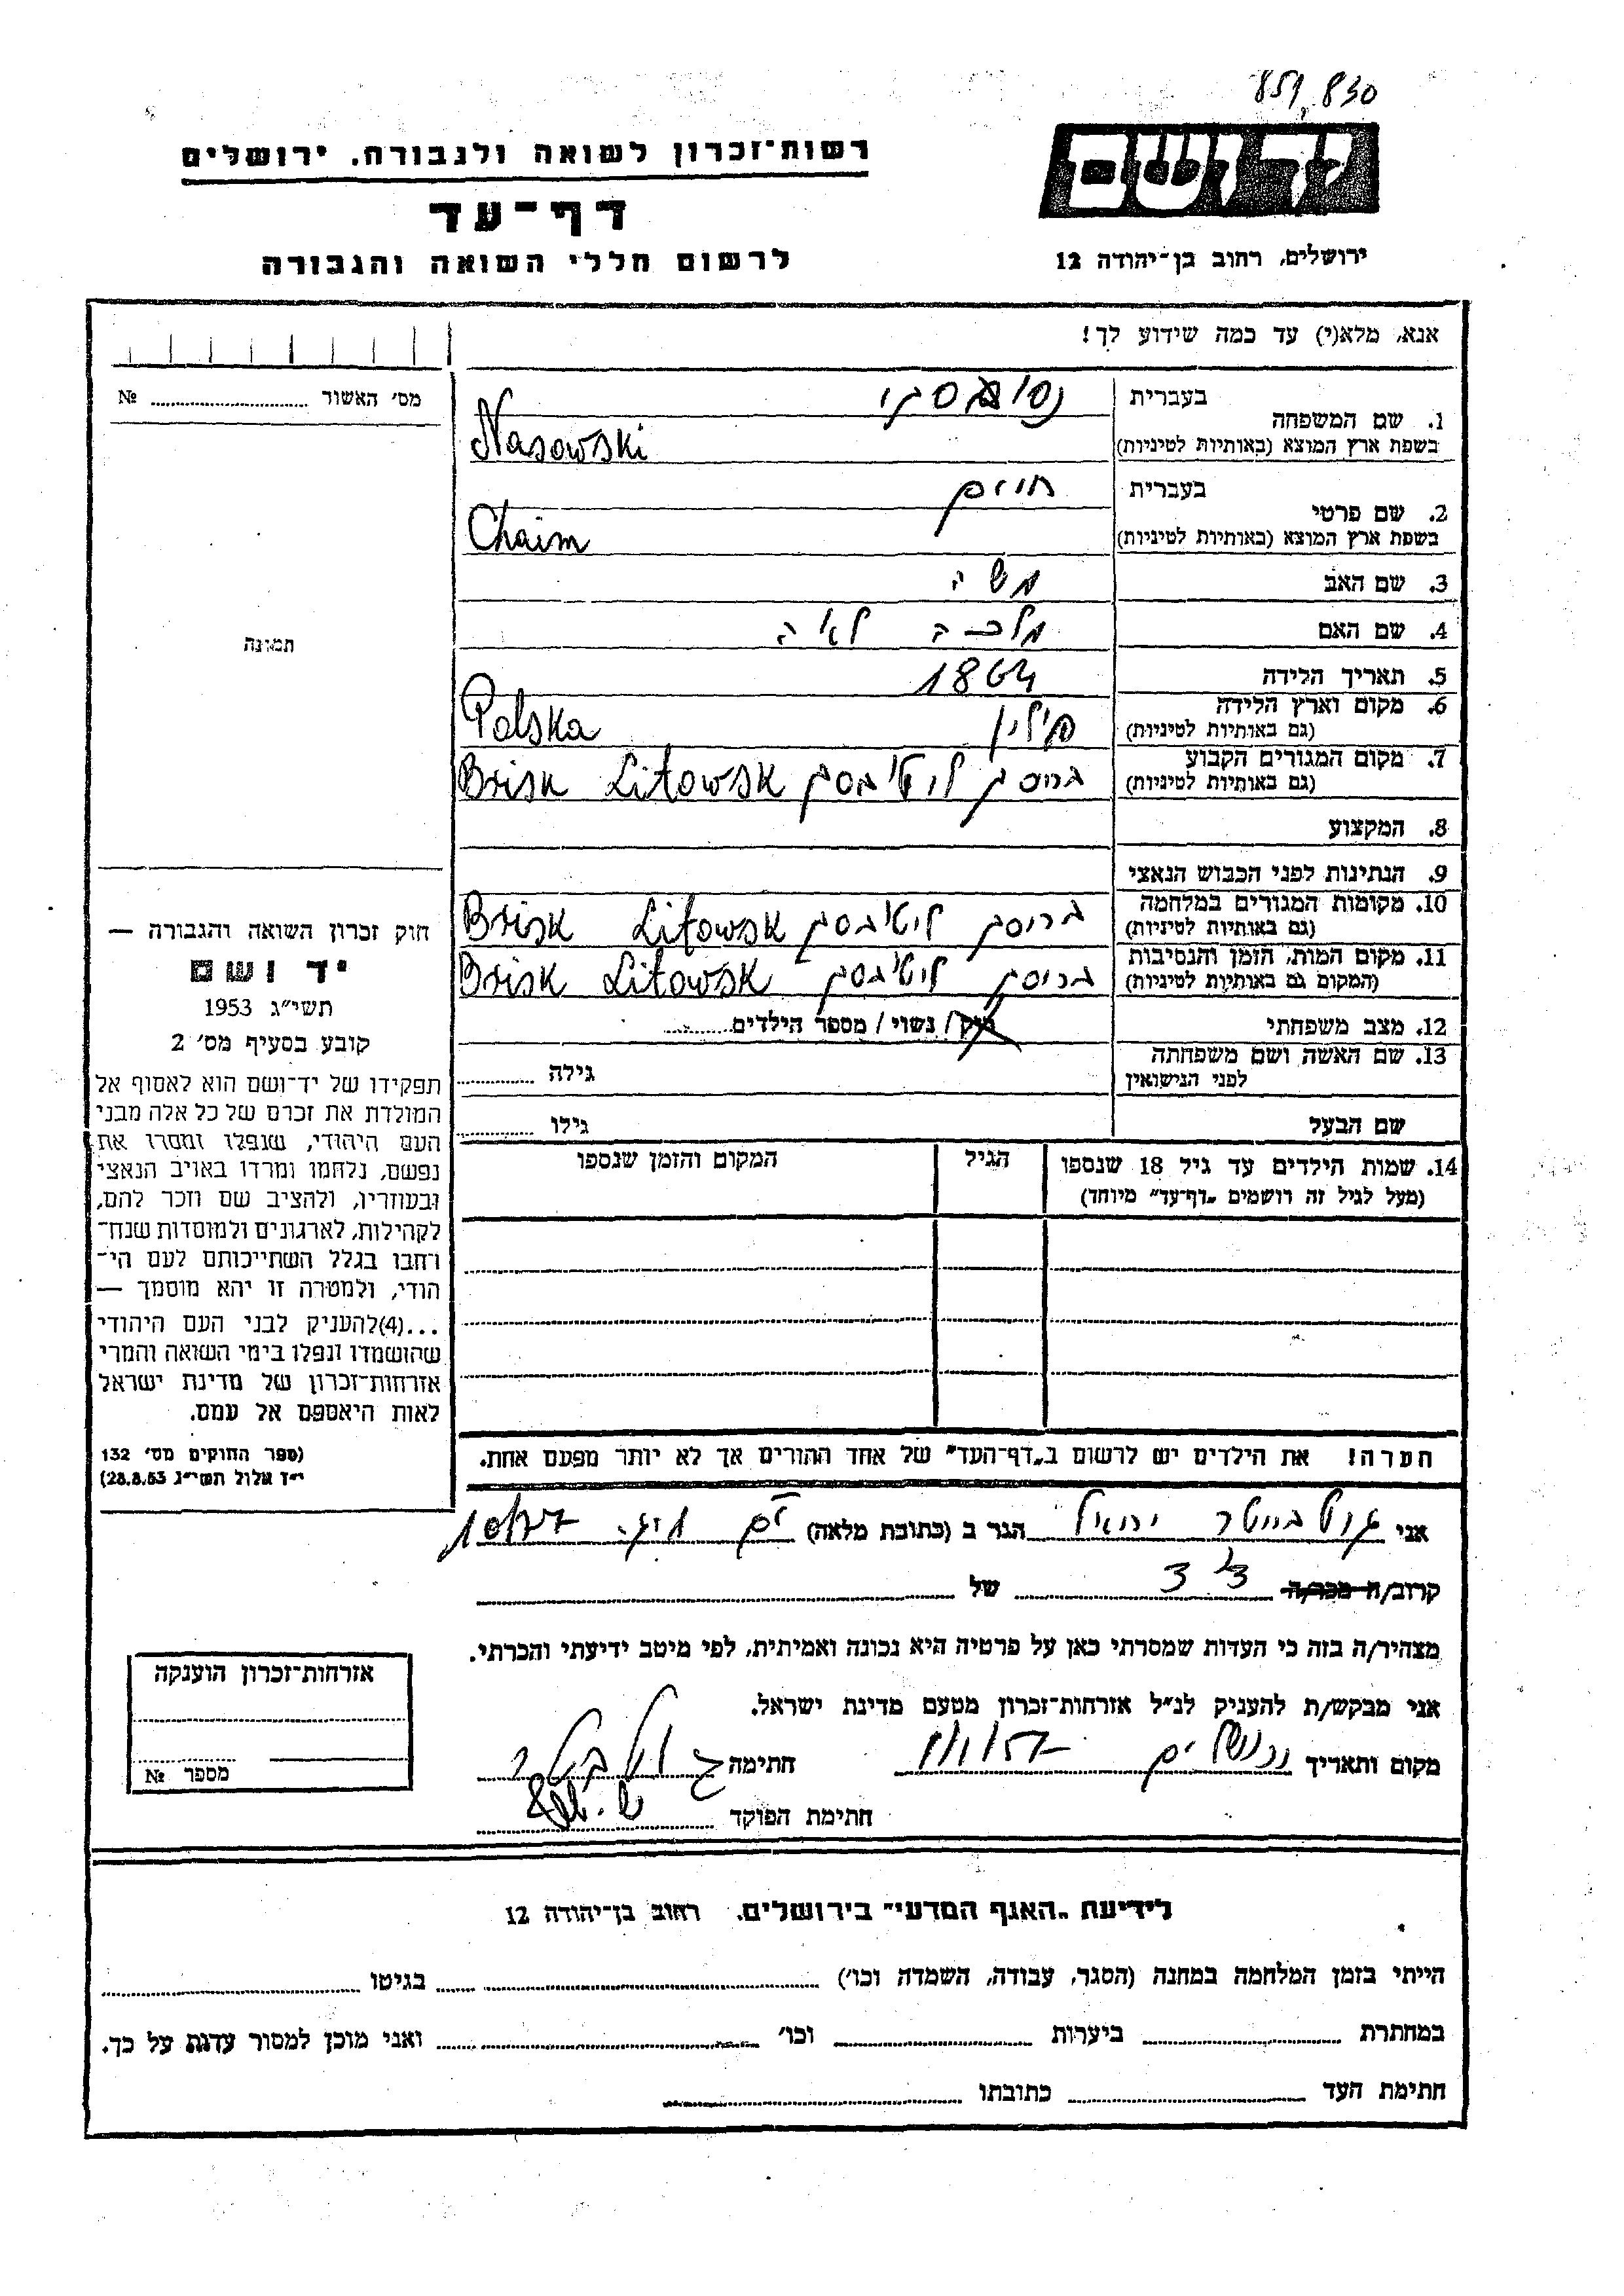 859,830
רשות־זכרון לשואה ולגבורה. ירושלים
יד ושם
דף־עד
לרשום חללי השואה והגבורה
ירושלים, רחוב בן־יהודה 12
אנא, מלא(י) עד כמה שידוע לך!
מס׳ האשור № 
1. שם המשפחה
בעברית
בשפת ארץ המוצא (באותיות לטיניות)
Nasowski
2. שם פרטי
בעברית חיים
בשפת ארץ המוצא (באותיות לטיניות)
Chaim
3. שם האב משה
4. שם האם מלכה לאה
תמונה
5. תאריך הלידה 1864
6. מקום וארץ הלידה
(גם באותיות לטיניות) פולין Polska
7. מקום המגורים הקבוע
(גם באותיות לטיניות) בריסק ליטובסק Brisk Litowsk
8. המקצוע
9. הנתינות לפני הכבוש הנאצי
10. מקומות המגורים במלחמה
(גם באותיות לטיניות) בריסק ליטובסק Brisk Litowsk
11. מקום המות, הזמן והנסיבות
(המקום גם באותיות לטיניות) בריסק ליטובסק Brisk Litowsk
12. מצב משפחתי רוק / נשוי / מספר הילדים
13. שם האשה ושם משפחתה
לפני הנישואין גילה
שם הבעל גילו
14. שמות הילדים עד גיל 18 שנספו
(מעל לגיל זה רושמים „דף־עד״ מיוחד)
הגיל
המקום והזמן שנספו
חוק זכרון השואה והגבורה —
יד ושם
תשי״ג 1953
קובע בסעיף מס׳ 2
תפקידו של יד־ושם הוא לאסוף אל
המולדת את זכרם של כל אלה מבני
העם היהודי, שנפלו ומסרו את
נפשם, נלחמו ומרדו באויב הנאצי
ובעוזריו, ולהציב שם וזכר להם,
לקהילות, לארגונים ולמוסדות שנח־
רחבו בגלל השתייכותם לעם הי־
הודי, ולמטרה זו יהא מוסמך —
...(4)להעניק לבני העם היהודי
שהושמדו ונפלו בימי השואה והמרי
אזרחות־זכרון של מדינת ישראל
לאות היאספם אל עמם.
(ספר החוקים מס׳ 132
י״ד אלול תשי״ג 28.8.53)
הערה! את הילדים יש לרשום ב„דף־העד״ של אחד ההורים אך לא יותר מפעם אחת.
אני הגר ב (כתובת מלאה)
קרוב/ה מכר/ה של
מצהיר/ה בזה כי העדות שמסרתי כאן על פרטיה היא נכונה ואמיתית, לפי מיטב ידיעתי והכרתי.
אני מבקש/ת להעניק לנ״ל אזרחות־זכרון מטעם מדינת ישראל.
מקום ותאריך ירושלים חתימה
חתימת הפוקד
אזרחות־זכרון הוענקה
מספר №
לידיעת „האגף המדעי״ בירושלים. רחוב בן־יהודה 12
הייתי בזמן המלחמה במחנה (הסגר, עבודה, השמדה וכו׳) בגיטו
במחתרת ביערות וכו׳ ואני מוכן למסור עדות על כך.
חתימת העד כתובתו